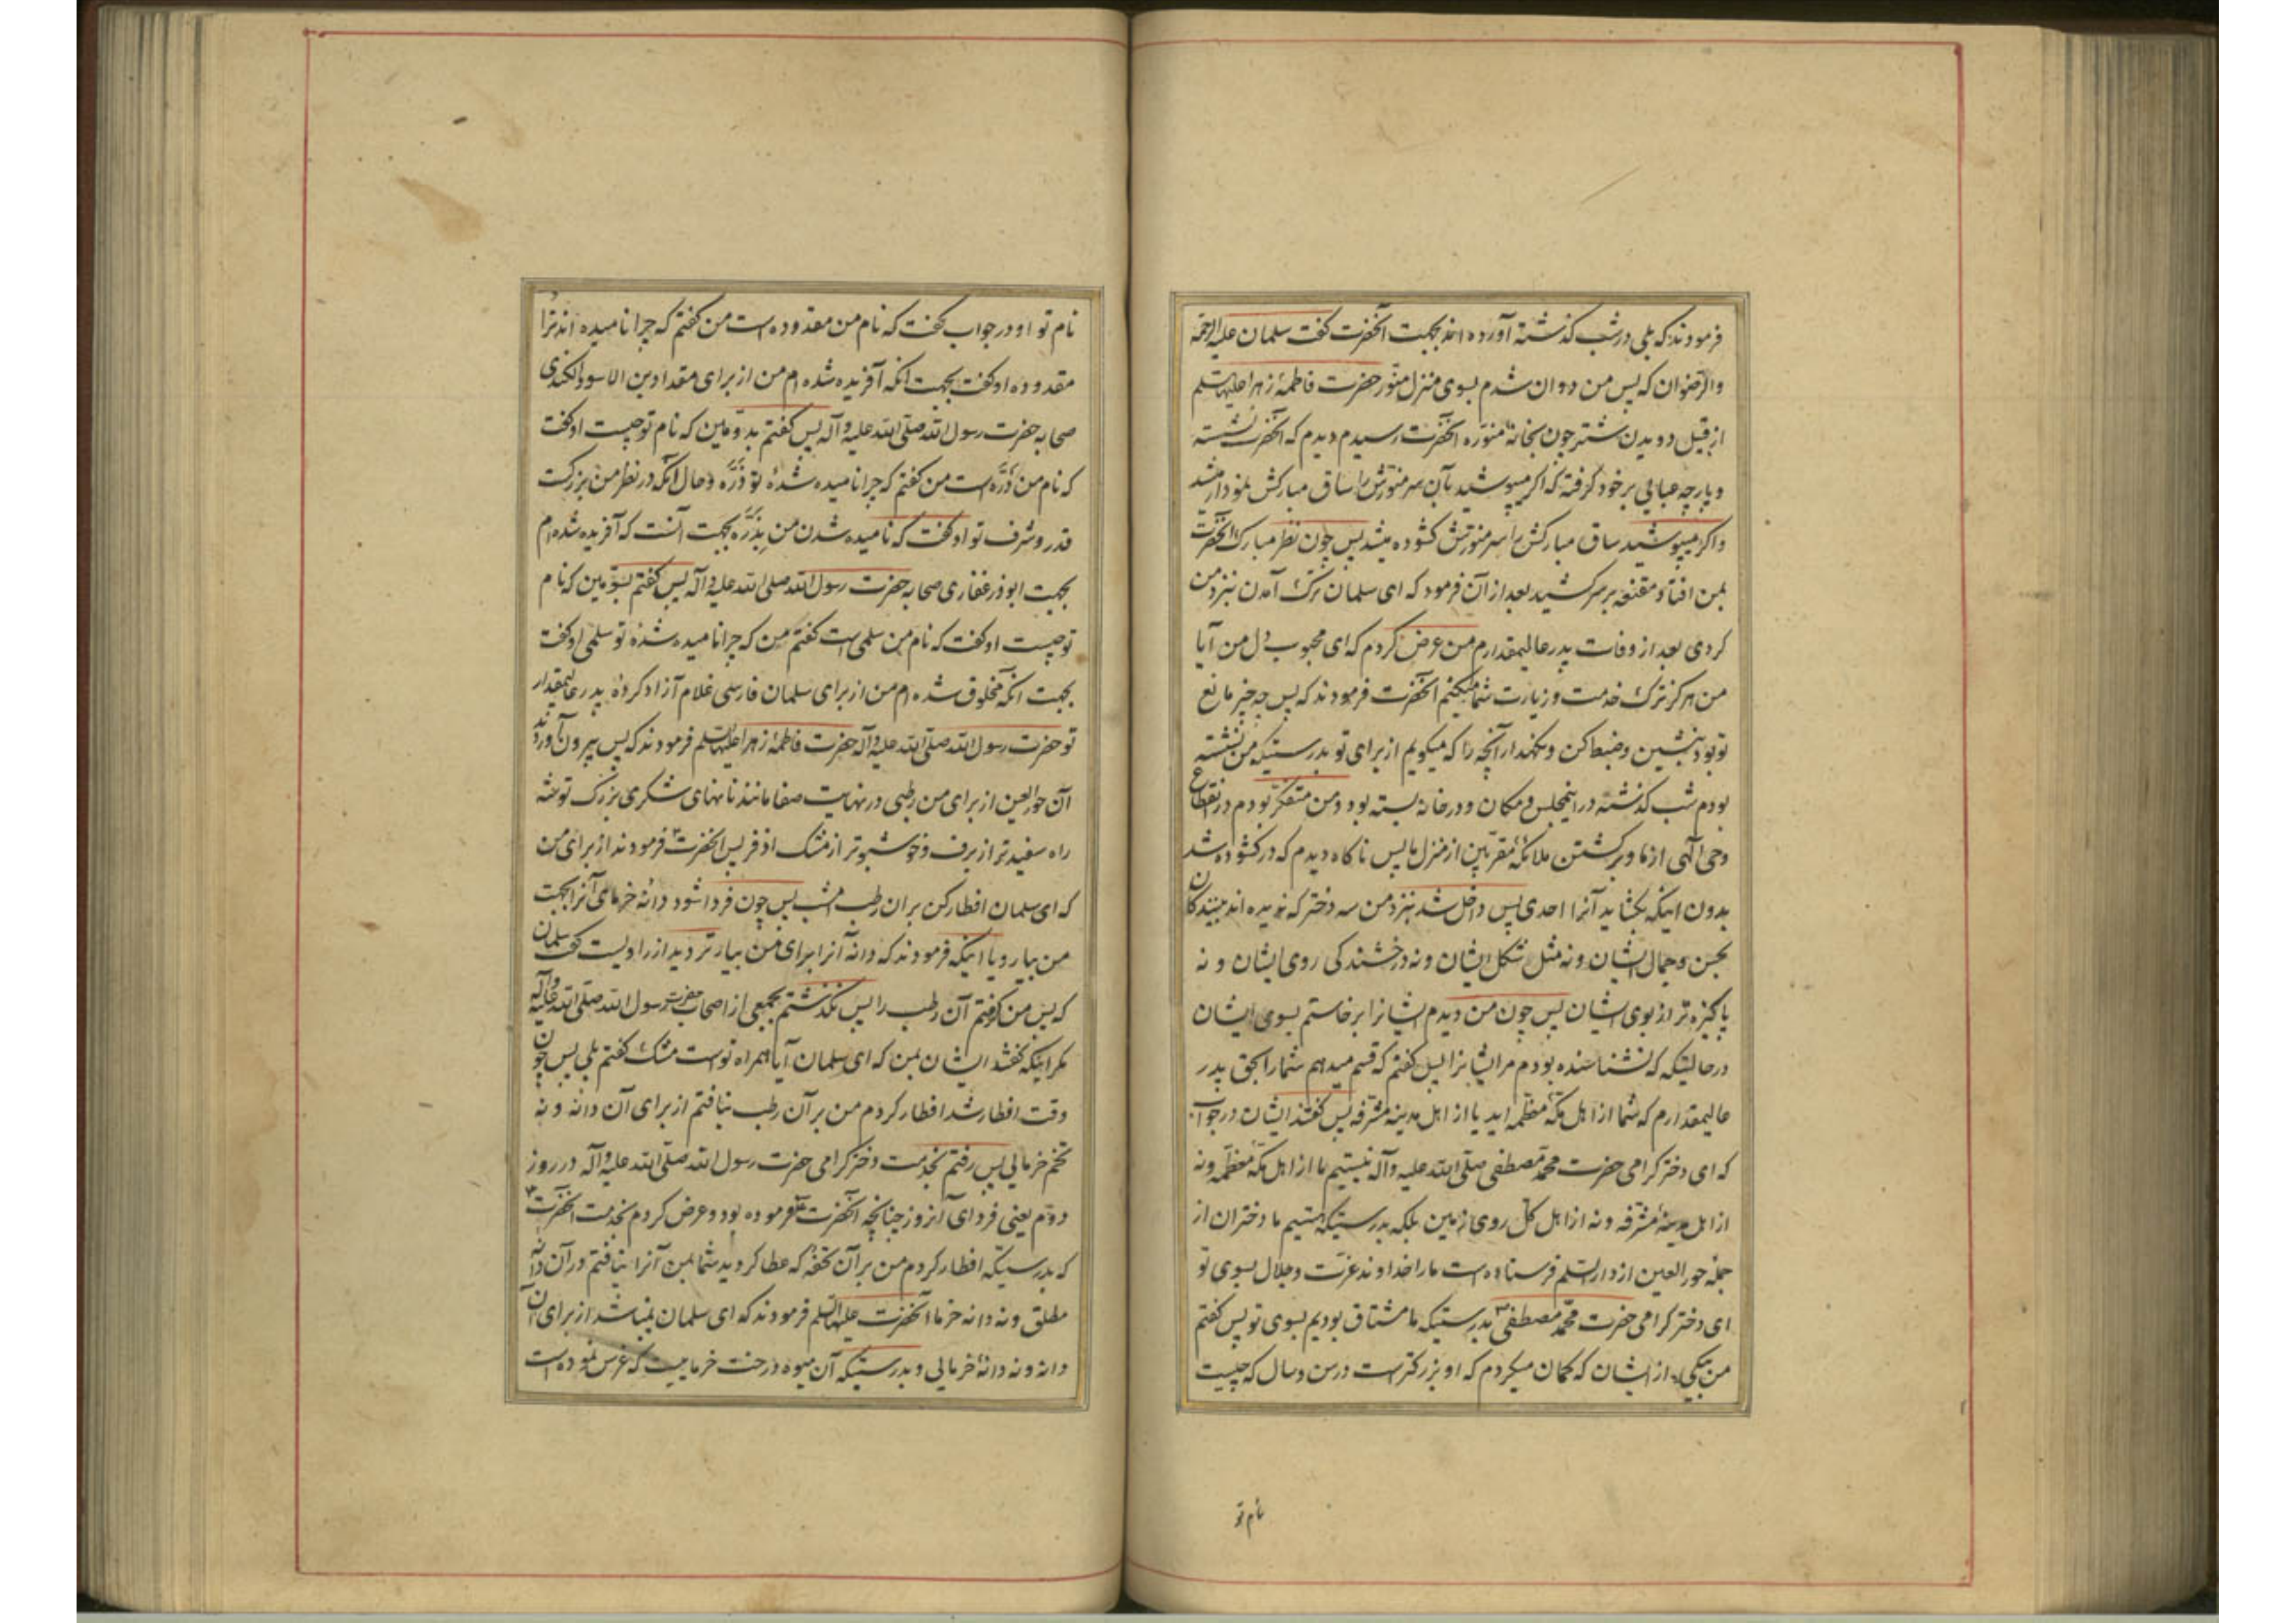 فرمودند که بلی در شب گذشته آورده اند بجهت آنحضرت گفت سلمان علیه الرحمة
والرضوان که پس من دوان شدم بسوی منزل منوّر حضرت فاطمهٔ زهرا علیها السلم
از قبیل دویدن شتر چون بخانهٔ منوّره آنحضرت رسیدم دیدم که آنحضرت نشسته
و پارچه عبایی بر خود گرفته که اگر میپوشید بآن سر منوّرش را ساق مبارکش نمودار میشد
و اگر میپوشید ساق مبارکش را سر منورش کشوده میشد پس چون نظر مبارک آنحضرت
بمن افتاد مقنعه بر سر کشید بعد از آن فرمود که ای سلمان ترک آمدن نزد من
کردی بعد از وفات پدر عالیمقدارم من عرض کردم که ای محبوب دل من آیا
من هرگز ترک خدمت و زیارت شما میکنم آنحضرت فرمودند که پس چه چیز مانع
تو بود بنشین و ضبط کن و نگهدار آنچه را که میگویم از برای تو بدرستیکه من نشسته
بودم شب گذشته در اینمجلس و مکان و در خانه بسته بود و من متفکّر بودم در انقطاع
وحی الهی از ما و برگشتن ملائکهٔ مقرّبین از منزل ما پس ناگاه دیدم که در کشوده شد
بدون اینکه بگشاید آنرا احدی پس داخل شد نزد من سه دختر که ندیده اند بینندگان
بحسن و جمال ایشان و نه مثل شکل ایشان و نه درخشندگی روی ایشان و نه
پاکیزه تر از بوی ایشان پس چون من دیدم ایشانرا برخاستم بسوی ایشان
در حالیتیکه که نشناسنده بودم مر ایشانرا پس گفتم که قسم میدهم شما را بحق پدر
عالیمقدارم که شما از اهل مکّهٔ معظّمه اید یا از اهل مدینهٔ مشرّفه پس گفتند ایشان در جواب
که ای دختر گرامی حضرت محمّد مصطفی صلّی الله علیه و آله نیستیم ما از اهل مکّهٔ معظّمه و نه
از اهل مدینهٔ مشرّفه و نه از اهل کلّ روی زمین بلکه بدرستیکه هستیم ما دختران از
جملهٔ حور العین از دار السلم فرستاده است ما را خداوند عزّت و جلال بسوی تو
ای دختر گرامی حضرت محمّد مصطفی ص بدرستیکه ما مشتاق بودیم بسوی تو پس گفتم
من بیکی از ایشان که گمان میکردم که او بزرگتر است در سن و سال که چیست
نام تو
نام تو او در جواب گفت که نام من مقدوده است من گفتم که چرا نامیده اند ترا
مقدوده او گفت بجهت آنکه آفریده شده ام من از برای مقداد بن الاسود الکندی
صحابه حضرت رسول الله صلّی الله علیه و آله پس گفتم بدوّمین که نام تو چیست او گفت
که نام من ذَرَّه است من گفتم که چرا نامیده شدهٔ تو ذَرَّه و حال آنکه در نظر من بزرگست
قدر و شرف تو او گفت که نامیده شدن من بِذَرَّه بجهت آنست که آفریده شده ام
بجهت ابوذر غفاری صحابه حضرت رسول الله صلی الله علیه و آله پس گفتم بسوّمین که نام
تو چیست او گفت که نام من سلمی است گفتم من که چرا نامیده شدهٔ تو سلمی او گفت
بجهت آنکه مخلوق شده ام من از برای سلمان فارسی غلام آزاد کردهٔ پدر عالیمقدار
تو حضرت رسول الله صلّی الله علیه و آله حضرت فاطمهٔ زهرا علیها السلم فرمودند که پس بیرون آوردند
آن حور العین از برای من رطبی در نهایت صفا مانند نانهای شکری بزرگ توشهٔ
راه سفیدتر از برف و خوشبوتر از مشک اذفر پس آنحضرت فرمودند از برای من
که ای سلمان افطار کن بر آن رطب امشب پس چون فردا شود دانهٔ خرمای آنرا بجهت
من بیار و یا اینکه فرمودند که دانه آنرا برای من بیار تردید از راویست گفت سلمان
که پس من گرفتم آن رطب را پس نگذشتم بجمعی از اصحاب حضرت رسول الله صلّی الله علیه و آله
مگر اینکه گفتند ایشان بمن که ای سلمان آیا همراه تو است مشک گفتم بلی پس چون
وقت افطار شد افطار کردم من بر آن رطب نیافتم از برای آن دانه و نه
تخم خرمایی پس رفتم بخدمت دختر گرامی حضرت رسول الله صلّی الله علیه و آله در روز
دوّم یعنی فردای آنروز چنانچه آنحضرت فرموده بود و عرض کردم بخدمت آنحضرت
که بدرستیکه افطار کردم من بر آن تحفه که عطا کردید شما بمن آنرا نیافتم در آن دانه
مطلق و نه دانه خرما آنحضرت علیها السلم فرمودند که ای سلمان نمیباشد از برای آن
دانه و نه دانهٔ خرمایی و بدرستیکه آن میوه درخت خرماییست که غرس نموده است